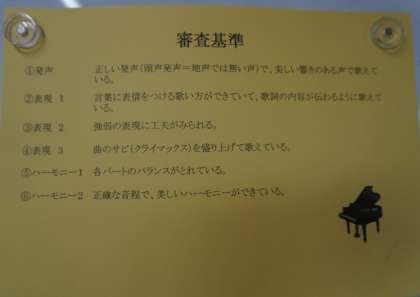 審査基準
①発声 正しい発声(頭声発声=地声では無い声)で、美しい響きのある声で歌えて
いる。
②表現 1 言葉に表情をつける歌い方ができていて、歌詞の内容が伝わるように歌えて
いる。
③表現 2 強弱の表現に工夫がみられる。
④表現 3 曲のサビ(クライマックス)を盛り上げて歌えている。
⑤ハーモニー1 各パートのバランスがとれている。
⑥ハーモニー2 正確な音程で、美しいハーモニーができている。